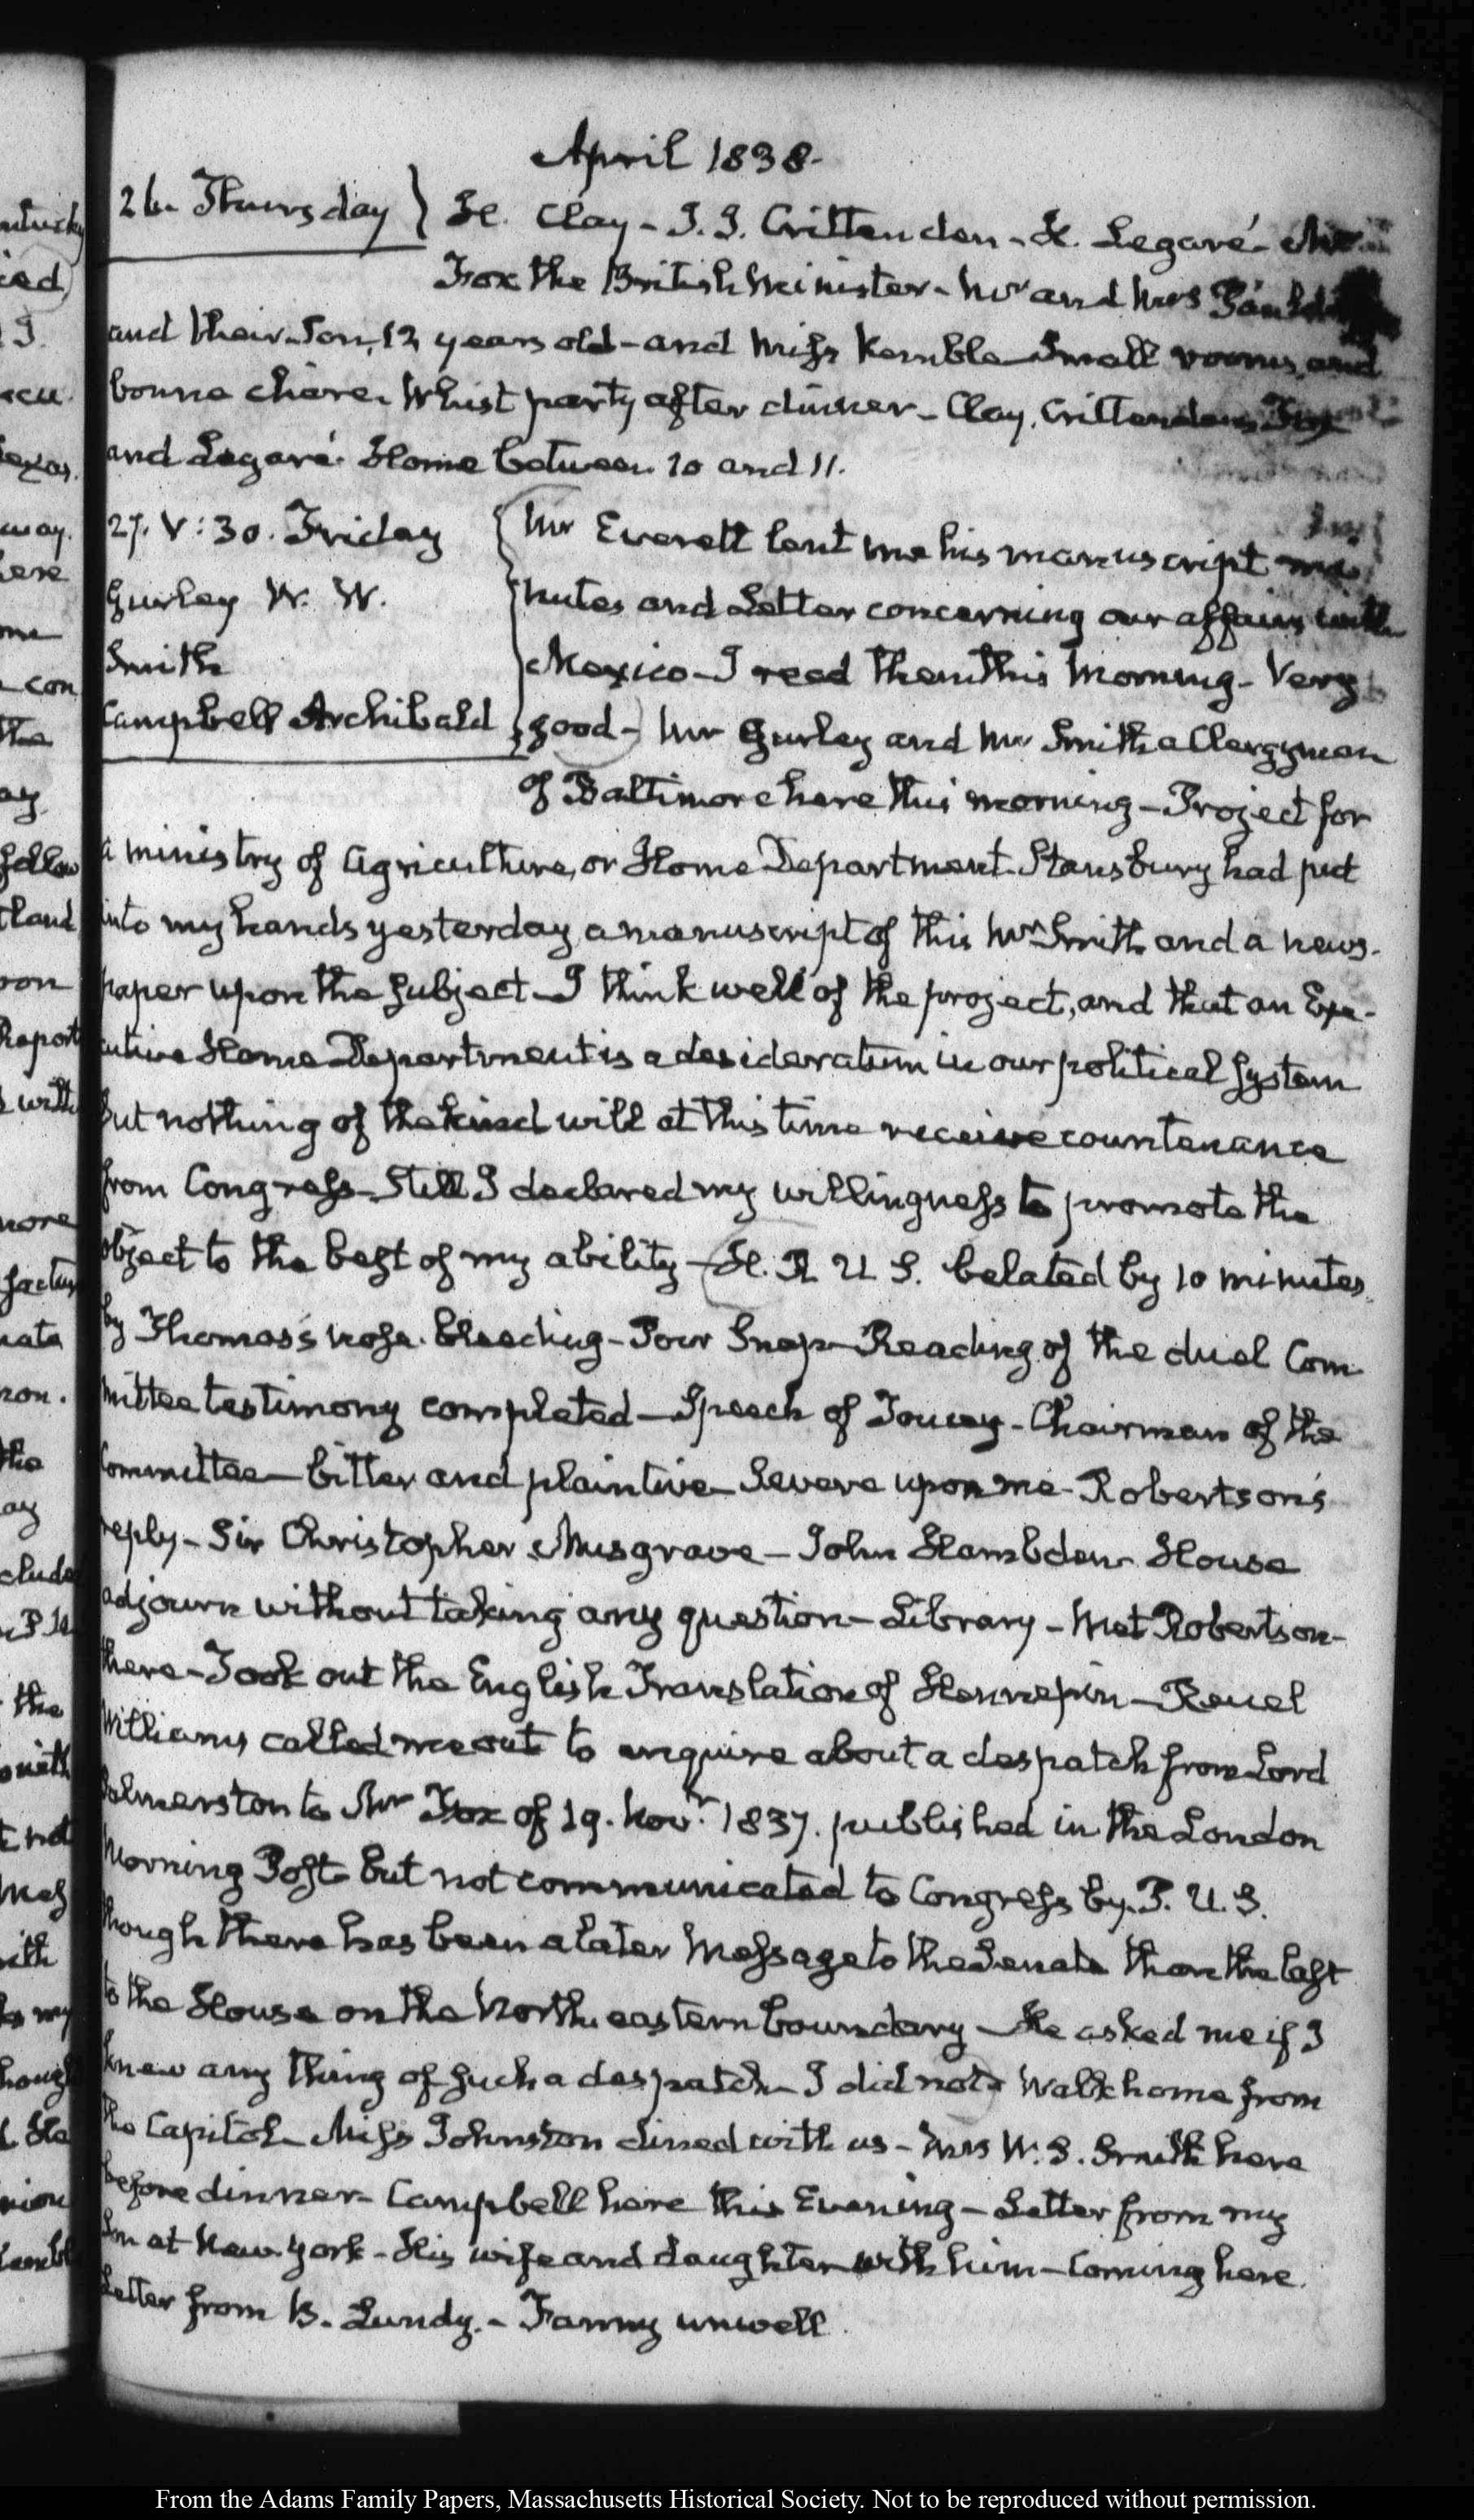 April 1838.
26. Thursday } H. Clay – J. J. Crittenden – H. Legaré – Mr
Fox the British Minister – Mr and Mrs
and their Son, 12 years old – and Miss Kemble Small rooms, and
bonne chère. Whist party after dinner – Clay, Crittenden, Fox
and Legaré. Home between 10 and 11.
27. V:30. Friday { Mr Everett lent me his manuscript mi
Gurley W. W. nutes and Letter concerning our affairs with
Smith Mexico – I read them this Morning – Very
Campbell Archibald good – Mr Gurley and Mr Smith a Clergyman
of Baltimore here this morning – Project for
a ministry of Agriculture, or Home Department. Stansbury had put
into my hands yesterday a manuscript of this Mr Smith and a news-
paper upon the subject – I think well of the project, and that an Exe-
cutive Home Department is a desideratum in our political System
but nothing of the kind will at this time receive countenance
from Congress – Still I declared my willingness to promote the
object to the best of my ability – H. R. U. S. belated by 10 minutes
by Thomas's nose bleeding – Reading of the duel Com
mittee testimony completed – Speech of Toucey – Chairman of the
Committee – bitter and plaintive – Severe upon me – Robertson's
reply – Sir Christopher Musgrave – John Hambden – House
adjourn without taking any question – Library – Met Robertson
there – Took out the English Translation of Hennepin – Reuel
Williams called me out to enquire about a despatch from Lord
Palmerston to Mr Fox of 19. Novr. 1837. published in the London
Morning Post but not communicated to Congress by P. U. S.
though there has been a later Message to the Senate than the last
to the House on the North eastern boundary – He asked me if I
knew any thing of such a despatch – I did not – Walk home from
the Capitol – Miss Johnston dined with us – Mrs W. S. Smith here
before dinner – Campbell here this Evening – Letter from my
Son at New York – His wife and daughter with him – Coming here.
Letter from B. Lundy. – Fanny unwell.
From the Adams Family Papers, Massachusetts Historical Society. Not to be reproduced without permission.